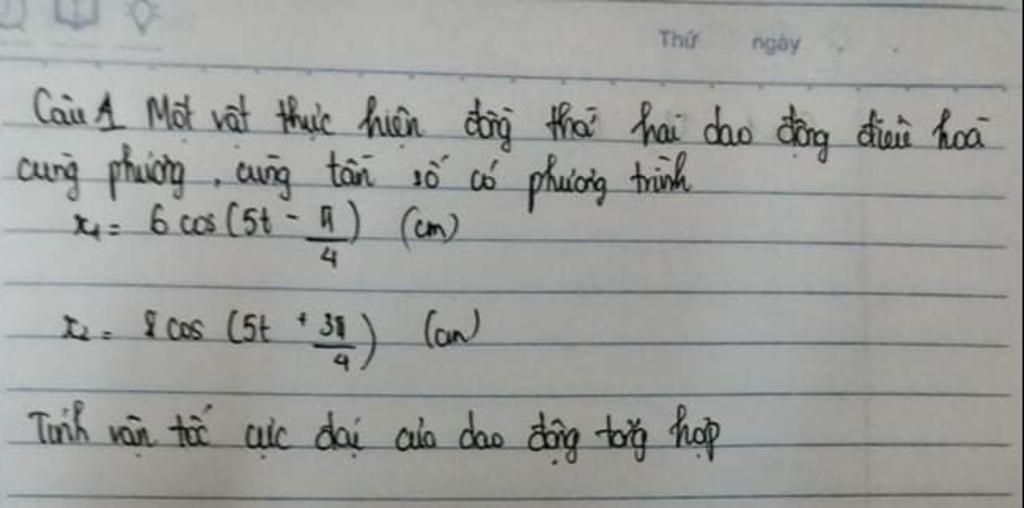 Thứ ngày
Câu 1 Một vật thực hiện đồng thời hai dao động điều hoà
cùng phương, cùng tần số có phương trình
x₁ = 6 cos (5t - π/4) (cm)
x₂ = 8 cos (5t + 3π/4) (cm)
Tính vận tốc cực đại của dao động tổng hợp